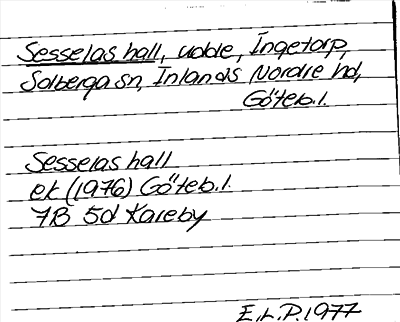 Sesselas hall, udde, Ingetorp,
Solberga sn, Inlands Nordre hd,
Göteb.l.
Sesselas hall
ek (1976) Göteb.l.
7B 5d Kareby
E.L.P. 1977